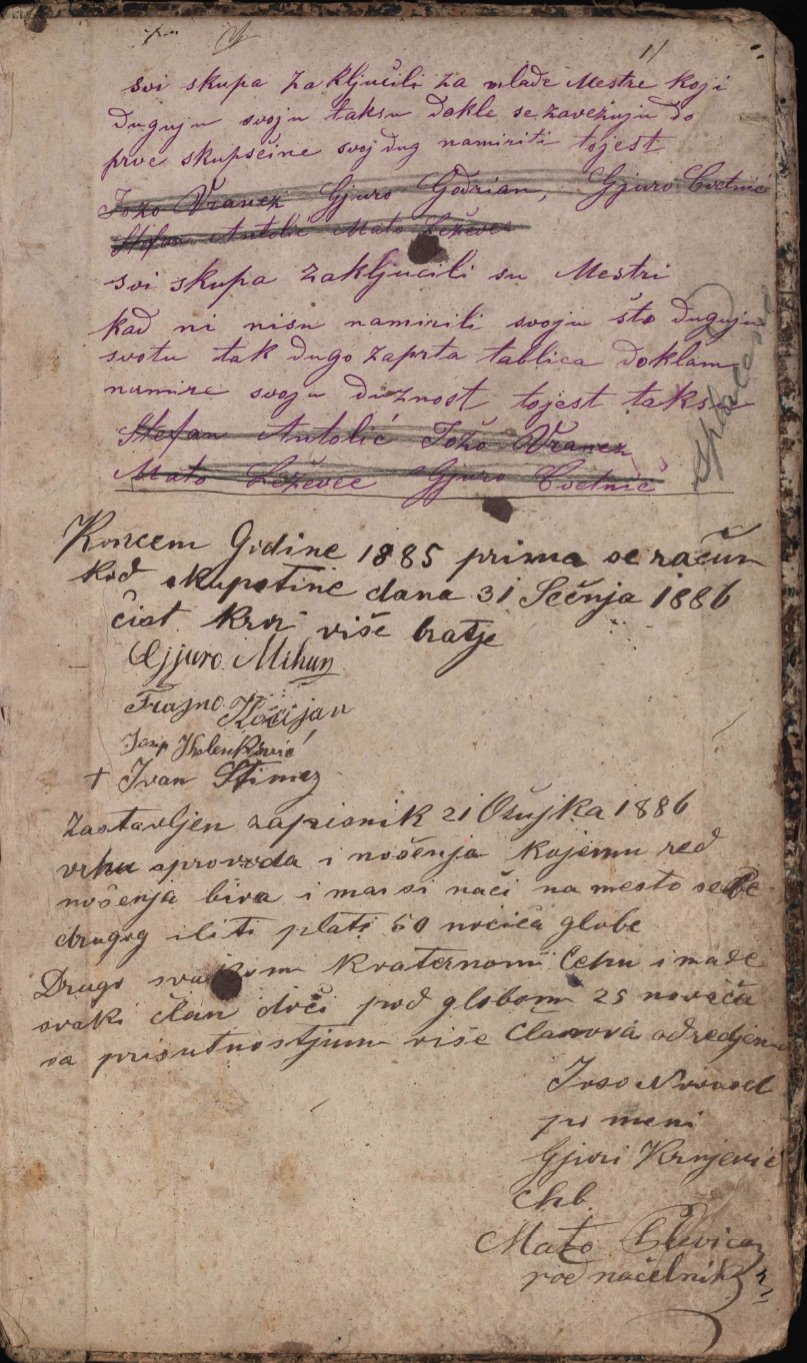 11
svi skupa zaključili za mlade Mestre koji
duguju svoju taksu dakle se zavežuju do
prve skupsčine svoj dug namiriti tojest
Jožo Vranez Gjuro Godrian, Gjuro Cvetnić
Stefan Antolić Mato Leževec
svi skupa zakljucili su Mestri
kad ni nisu namirili svoju što duguju
svotu tak dugo zaprta tablica doklam
namire svoju dužnost tojest taksu
Stefan Antolić Jožo Vranez
Mato Leževec Gjuro Cvetnić
Koncem Godine 1885 prima se račun
kod skupštine dana 31 Sečnja 1886
čist kroz više bratje
Gjuro Mihun
Frajno Kocijan
Josip
+ Ivan Štimez
Zastavljen zapisnik 21 Ožujka 1886
vrhu sprovoda i nošenja kojemu red
nošenja biva i mai si naći na mesto sebe
drugog iliti plati 50 novčića globe
Drugo svakom kvaternom Cehu imade
svaki član doći pod globom 25 novčča
sa prisutnostjum više Članova odredjeno
Joso Novosel
po meni
Gjuri Krnjević
Chb
Mato
pod načelnik